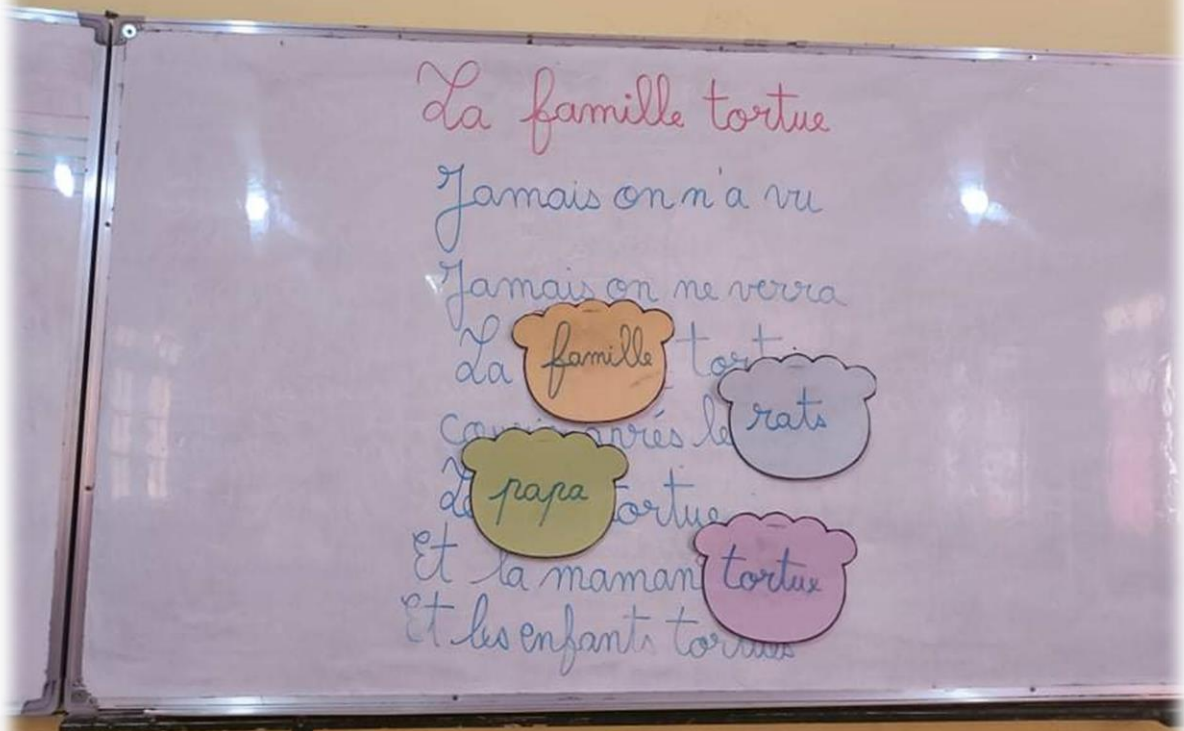 La famille tortue
Jamais on n'a vu
Jamais on ne verra
La famille
rats
après
papa tortue
Et la maman tortue
Et les enfants tortues